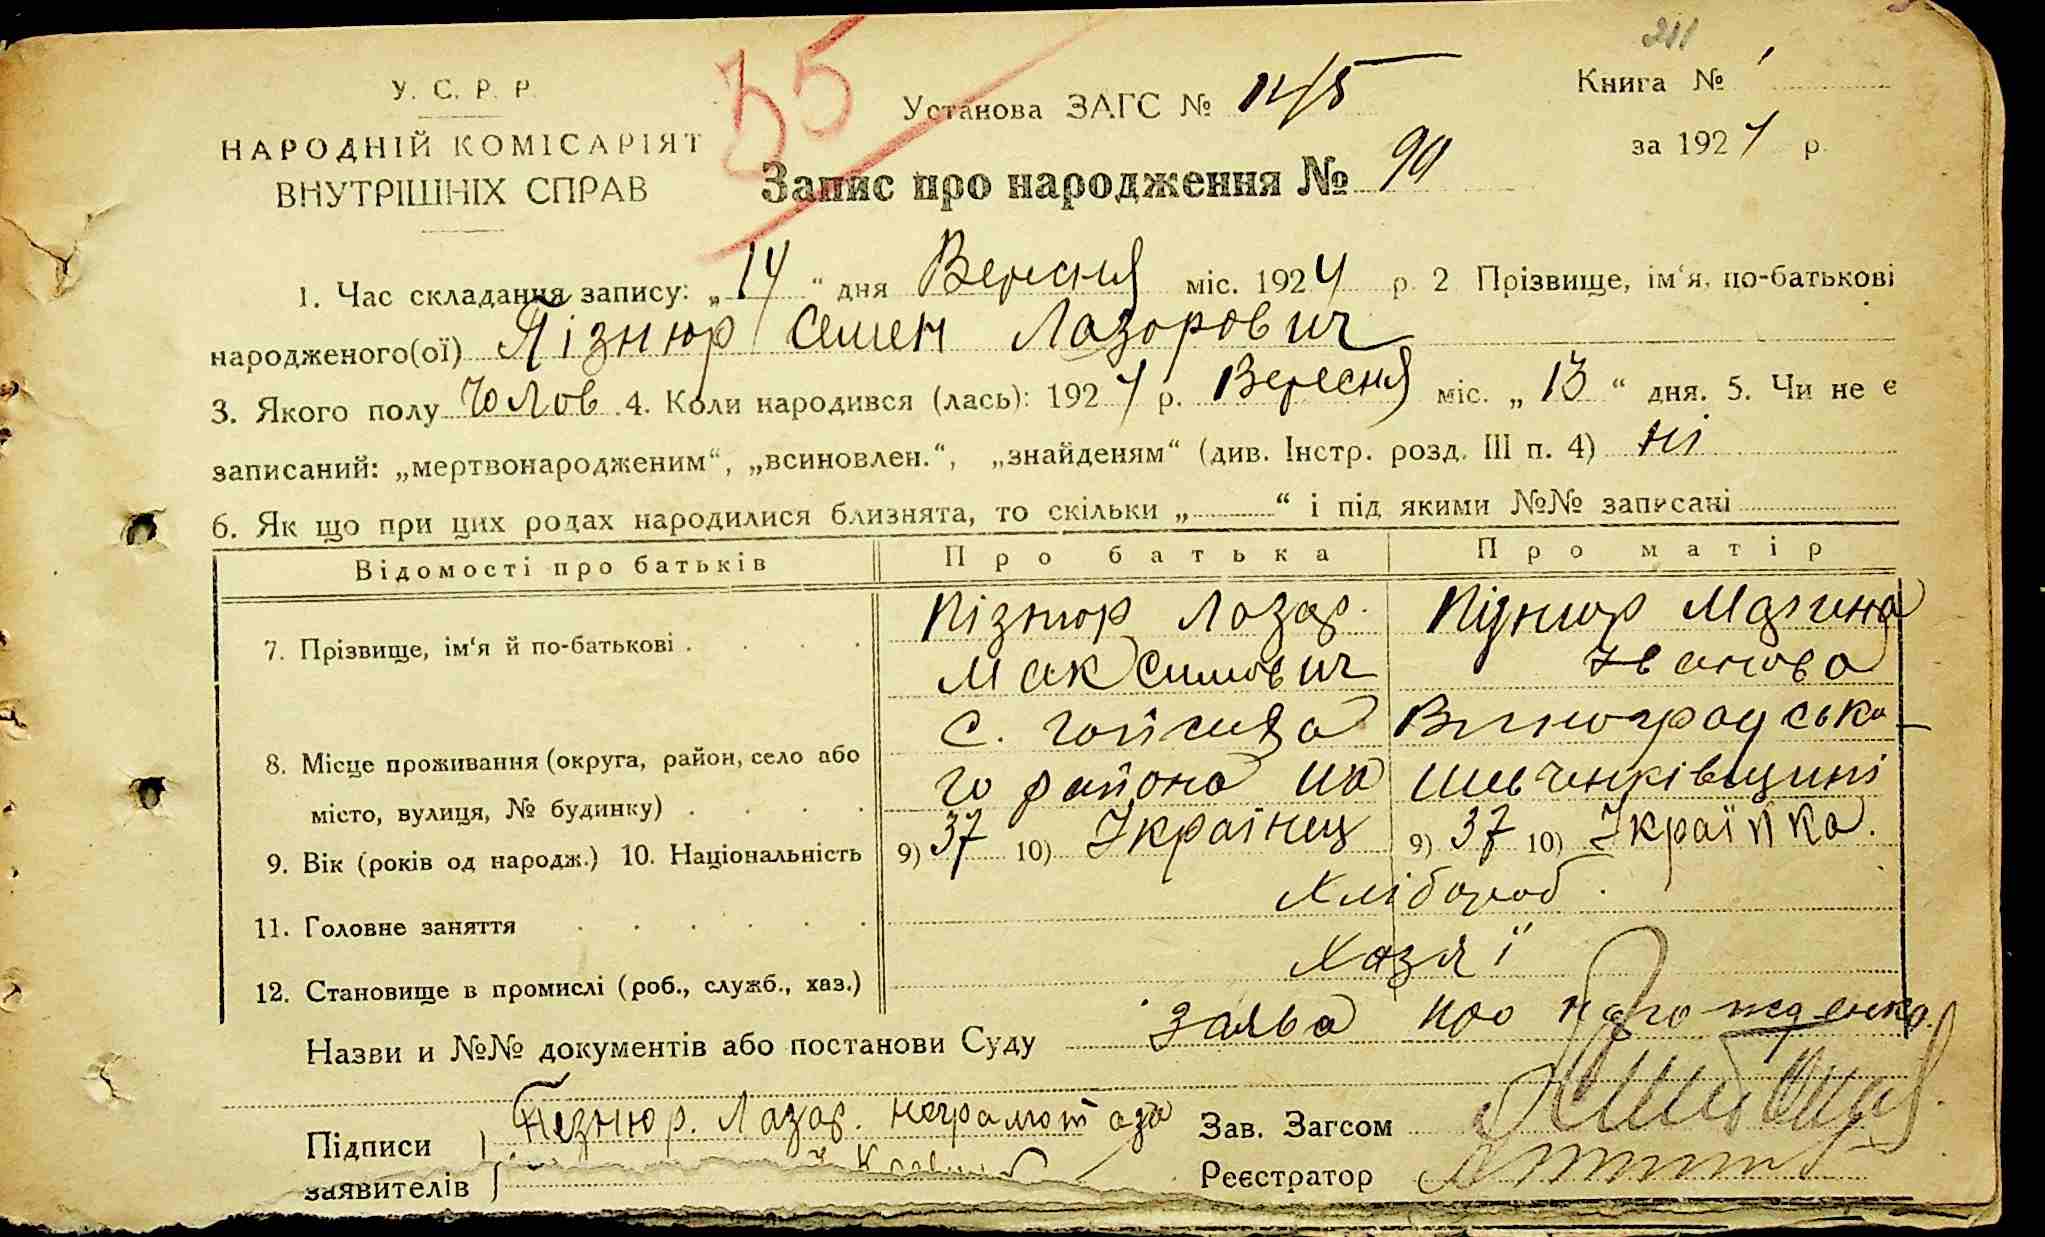 211
У. С. Р. Р.
НАРОДНІЙ КОМІСАРІЯТ
ВНУТРІШНІХ СПРАВ
35
Установа ЗАГС № 145
Книга № 1
за 1924 р.
Запис про народження № 90
1. Час складання запису: „14“ дня Вересня міс. 1924 р. 2 Прізвище, ім‘я, по-батькові
народженого(ої) Пізнюр Семен Лазорович
3. Якого полу Чолов. 4. Коли народився (лась): 1924 р. Вересня міс. „13“ дня. 5. Чи не є
записаний: „мертвонародженим“, „всиновлен.“, „знайденям“ (див. Інстр. розд. III п. 4) ні
6. Як що при цих родах народилися близнята, то скільки „ “ і під якими №№ записані
Відомості про батьків Про батька Про матір
7. Прізвище, ім‘я й по-батькові . Пізнюр Лазар. Пізнюр Марина
Максимович Іванова
8. Місце проживання (округа, район, село або с. Гойсива Виноградсько-
місто, вулиця, № будинку) го района на Шевченківщині
9. Вік (років од народж.) 10. Національність 9) 37 10) Українец 9) 37 10) Українка.
11. Головне заняття Хлібороб.
12. Становище в промислі (роб., служб., хаз.) Хазяї
Назви и №№ документів або постанови Суду Заява про
Підписи Пізнюр. Лазар. Зав. Загсом
заявителів Реєстратор